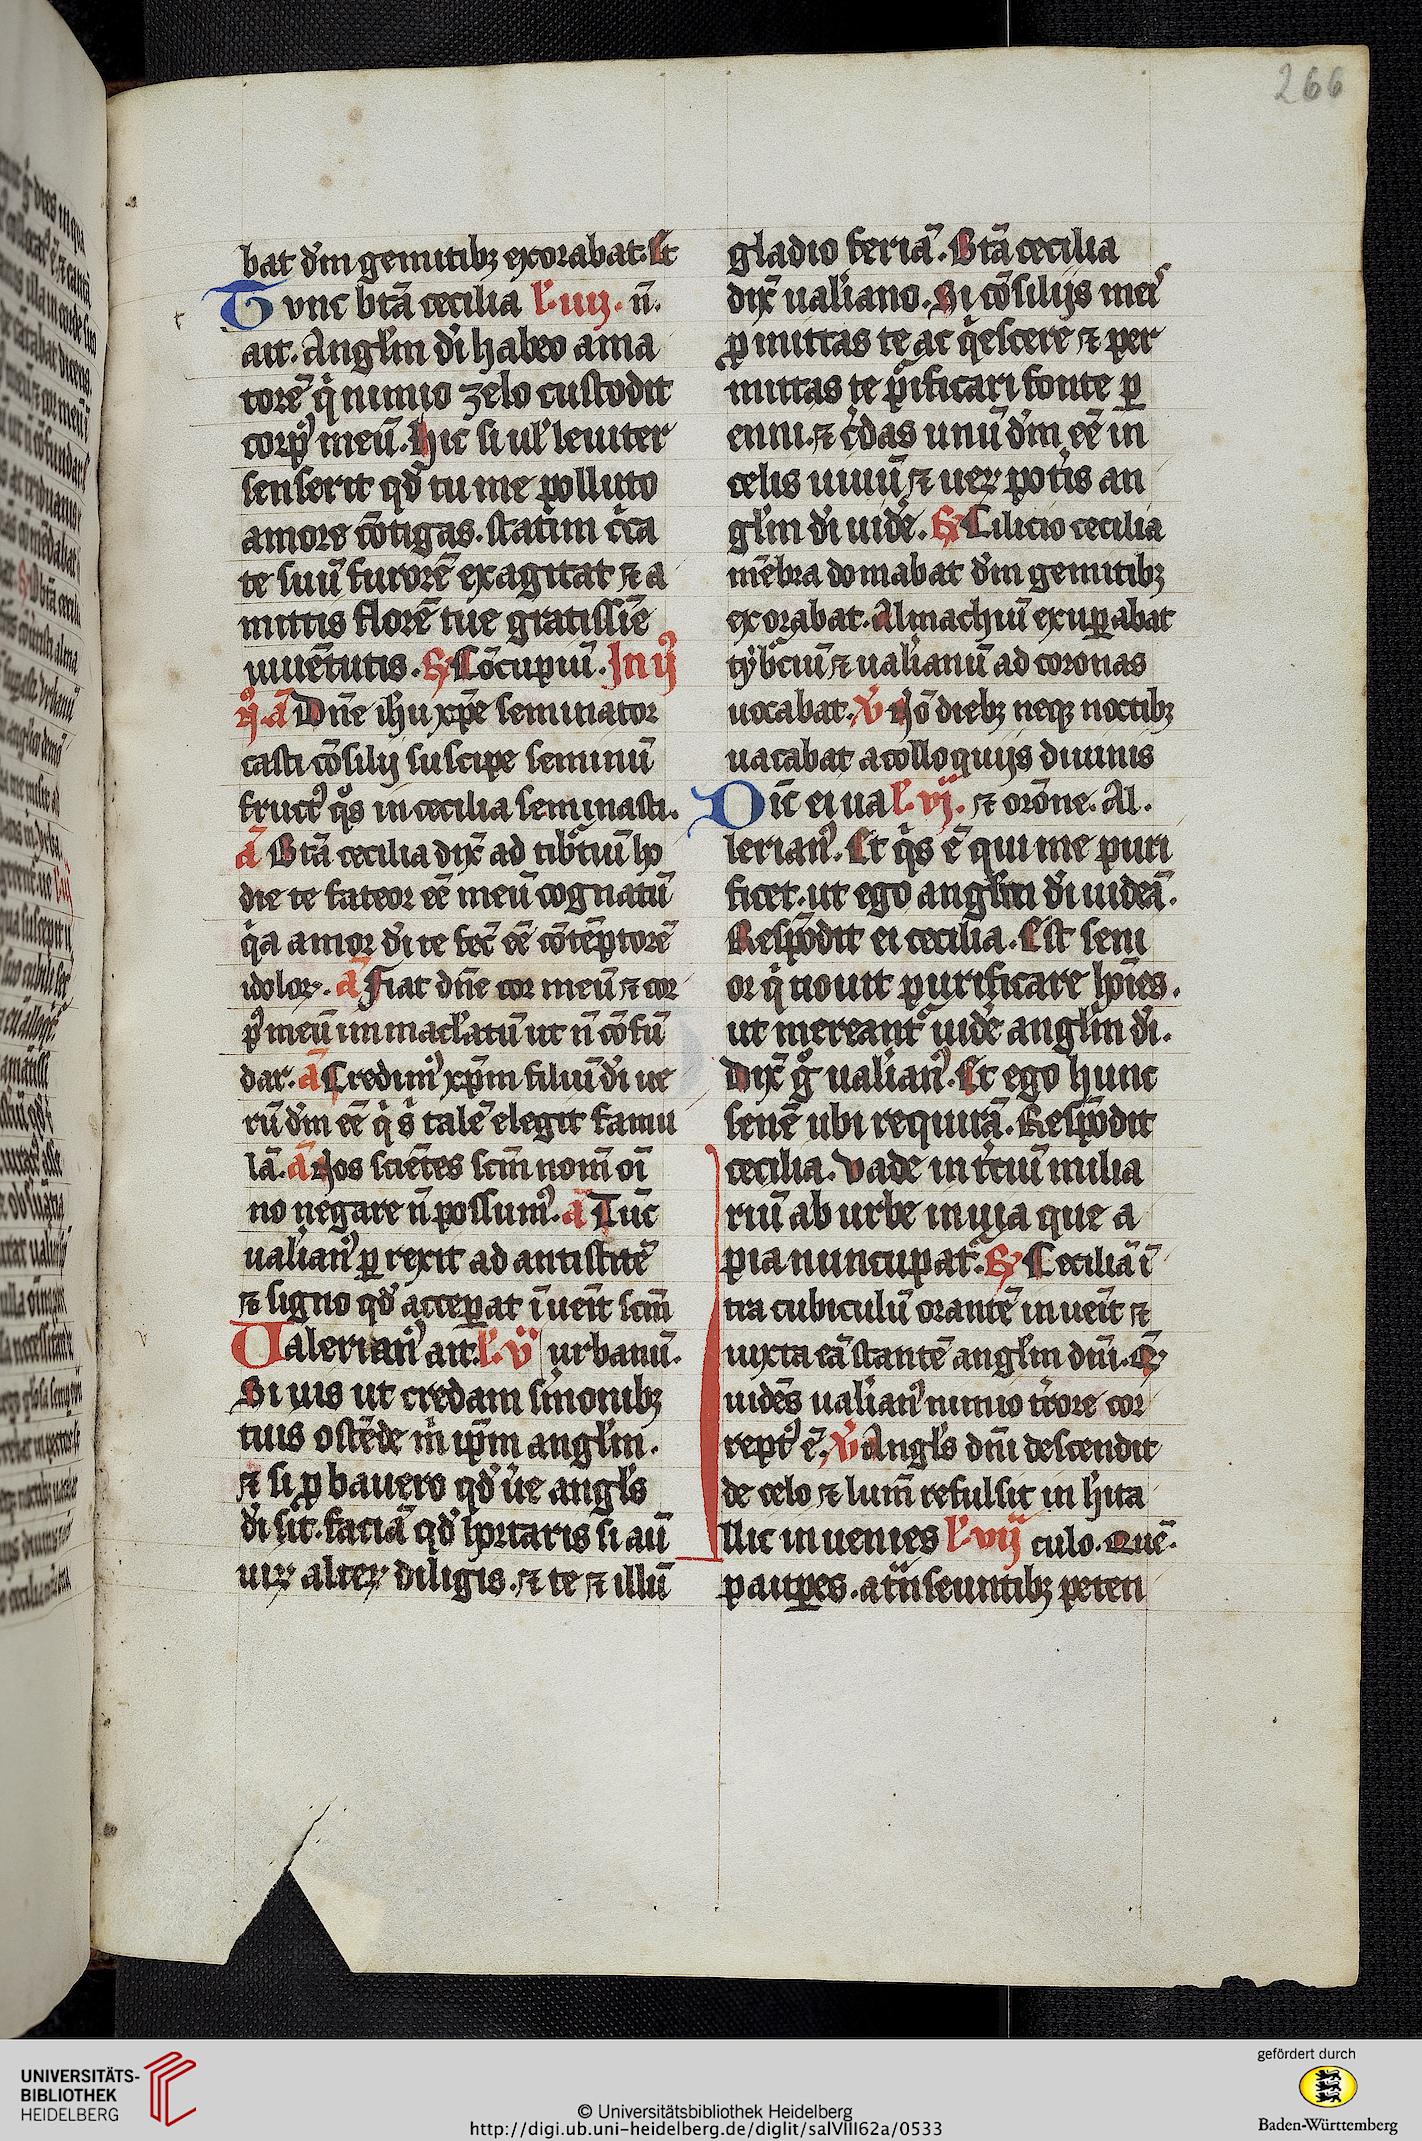 266
bat dm̄ gemitibꝫ exorabat. Et
Tvnc btā cecilia l. iiij. n̄.
ait. Angl'm di habeo ama
torē q̇ nimio zelo custodit
corpꝰ meū. Hic si ul' leuiter
senserit qd̓ tu me polluto
amore cōtigas. statim c̓ca
te suū furorē exagitat ⁊ a
mittis florē tue gratissīe
iuuētutis. R̸ Cōcupiuī. In ijͦ
nͦ. a᷑ Dn̄e ih̄u xp̄e seminator
casti cōsilij suscipe seminū
fructꝰ qͦs in cecilia seminasti.
a᷑ Btā cecilia dix̄ ad tib̓tiū ho
die te fateor eē meū cognatū
qa amor di te fec̄ eē cōtēptorē
idoloꝝ. a᷑ Fiat dn̄e cor meū ⁊ cor
pꝰ meū immacl'atū ut n̄ cōfū
dar. a᷑ Credimꝰ xp̄m filiū di ue
rū dm̄ eē q̇ s̓ talē elegit famu
lā. a᷑ Nos sciētes scm̄ nom̄ oī
no negare n̄ possumꝰ. a᷑ Tūc
ual'ianꝰ ꝑrexit ad antistitē
⁊ signo qd̓ acceꝑat īuēit scm̄
Ualerianꝰ ait. l. v urbanū.
Si uis ut credam s̓monibꝫ
tuis ostēde m̓ ip̄m angl'm.
⁊ si ꝓbauero qd̓ ūe angl's
di sit. faciā qd̓ hortaris si aū
uiꝝ alteꝝ diligis. ⁊ te ⁊ illū
gladio feriā. Btā cecilia
dix̄ ual'iano. Si cōsilijs meis
ꝓmittas te ac q̇escere ⁊ per
mittas te p̓ificari fonte ꝑ
enni. ⁊ c̓das unū dm̄ eē in
celis uiuū ⁊ ueꝝ pot̓is an
gl'm di uide. R̸ Cilicio cecilia
mēbra domabat dm̄ gemitibꝫ
exorabat. Almachiū exuꝑabat
tyb̓ciū ⁊ ual'ianū ad coronas
uocabat. V̓ Nō diebꝫ neqꝫ noctibꝫ
uacabat a colloquijs diuinis
Dic̄ ei ua l. vj. ⁊ orōne. Al.
lerianꝰ. Et q̇s ē qui me puri
ficet. ut ego anglm di uideā.
Respōdit ei cecilia. Est seni
or q̇ nouit purificare hoīes.
ut mereant᷑ uide angl'm di.
Dix̄ gͦ ual'ianꝰ. Et ego hunc
senē ubi requirā. Respōdit
cecilia. Vade in t̓ciū milia
riū ab urbe in uia que a
pia nuncupat᷑. R̸ Ceciliā ī
tra cubiculū orantē inuēit ⁊
iuxta eā stantē angl'm dn̄i. Q̄
uidēs ual'ianꝰ nimio t̓rore cor
reptꝰ ē. V̓ Angl's dn̄i descendit
de celo ⁊ lum̄ refulsit in h̓ita
Illic inuenies l. vij culo. Quē.
pauꝑes. a t̄nseuntibꝫ peten
UNIVERSITÄTS-
BIBLIOTHEK
HEIDELBERG
© Universitätsbibliothek Heidelberg
http://digi.ub.uni-heidelberg.de/diglit/salVIII62a/0533
gefördert durch
Baden-Württemberg